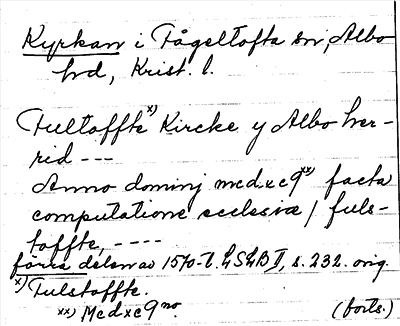 Kyrkan i Fågeltofta sn, Albo
hd, Krist. l.
Fultoffte x) Kircke y Albo her-
rid ---
Anno dominj mcdxc9 xx) facta
computatione ecclesiæ / fuls-
toffte, ----
förra delen av 1570-t. LSLB II, s. 232. orig.
x) Fulstoffte.
xx) Mcdxc9 no.
(forts.)